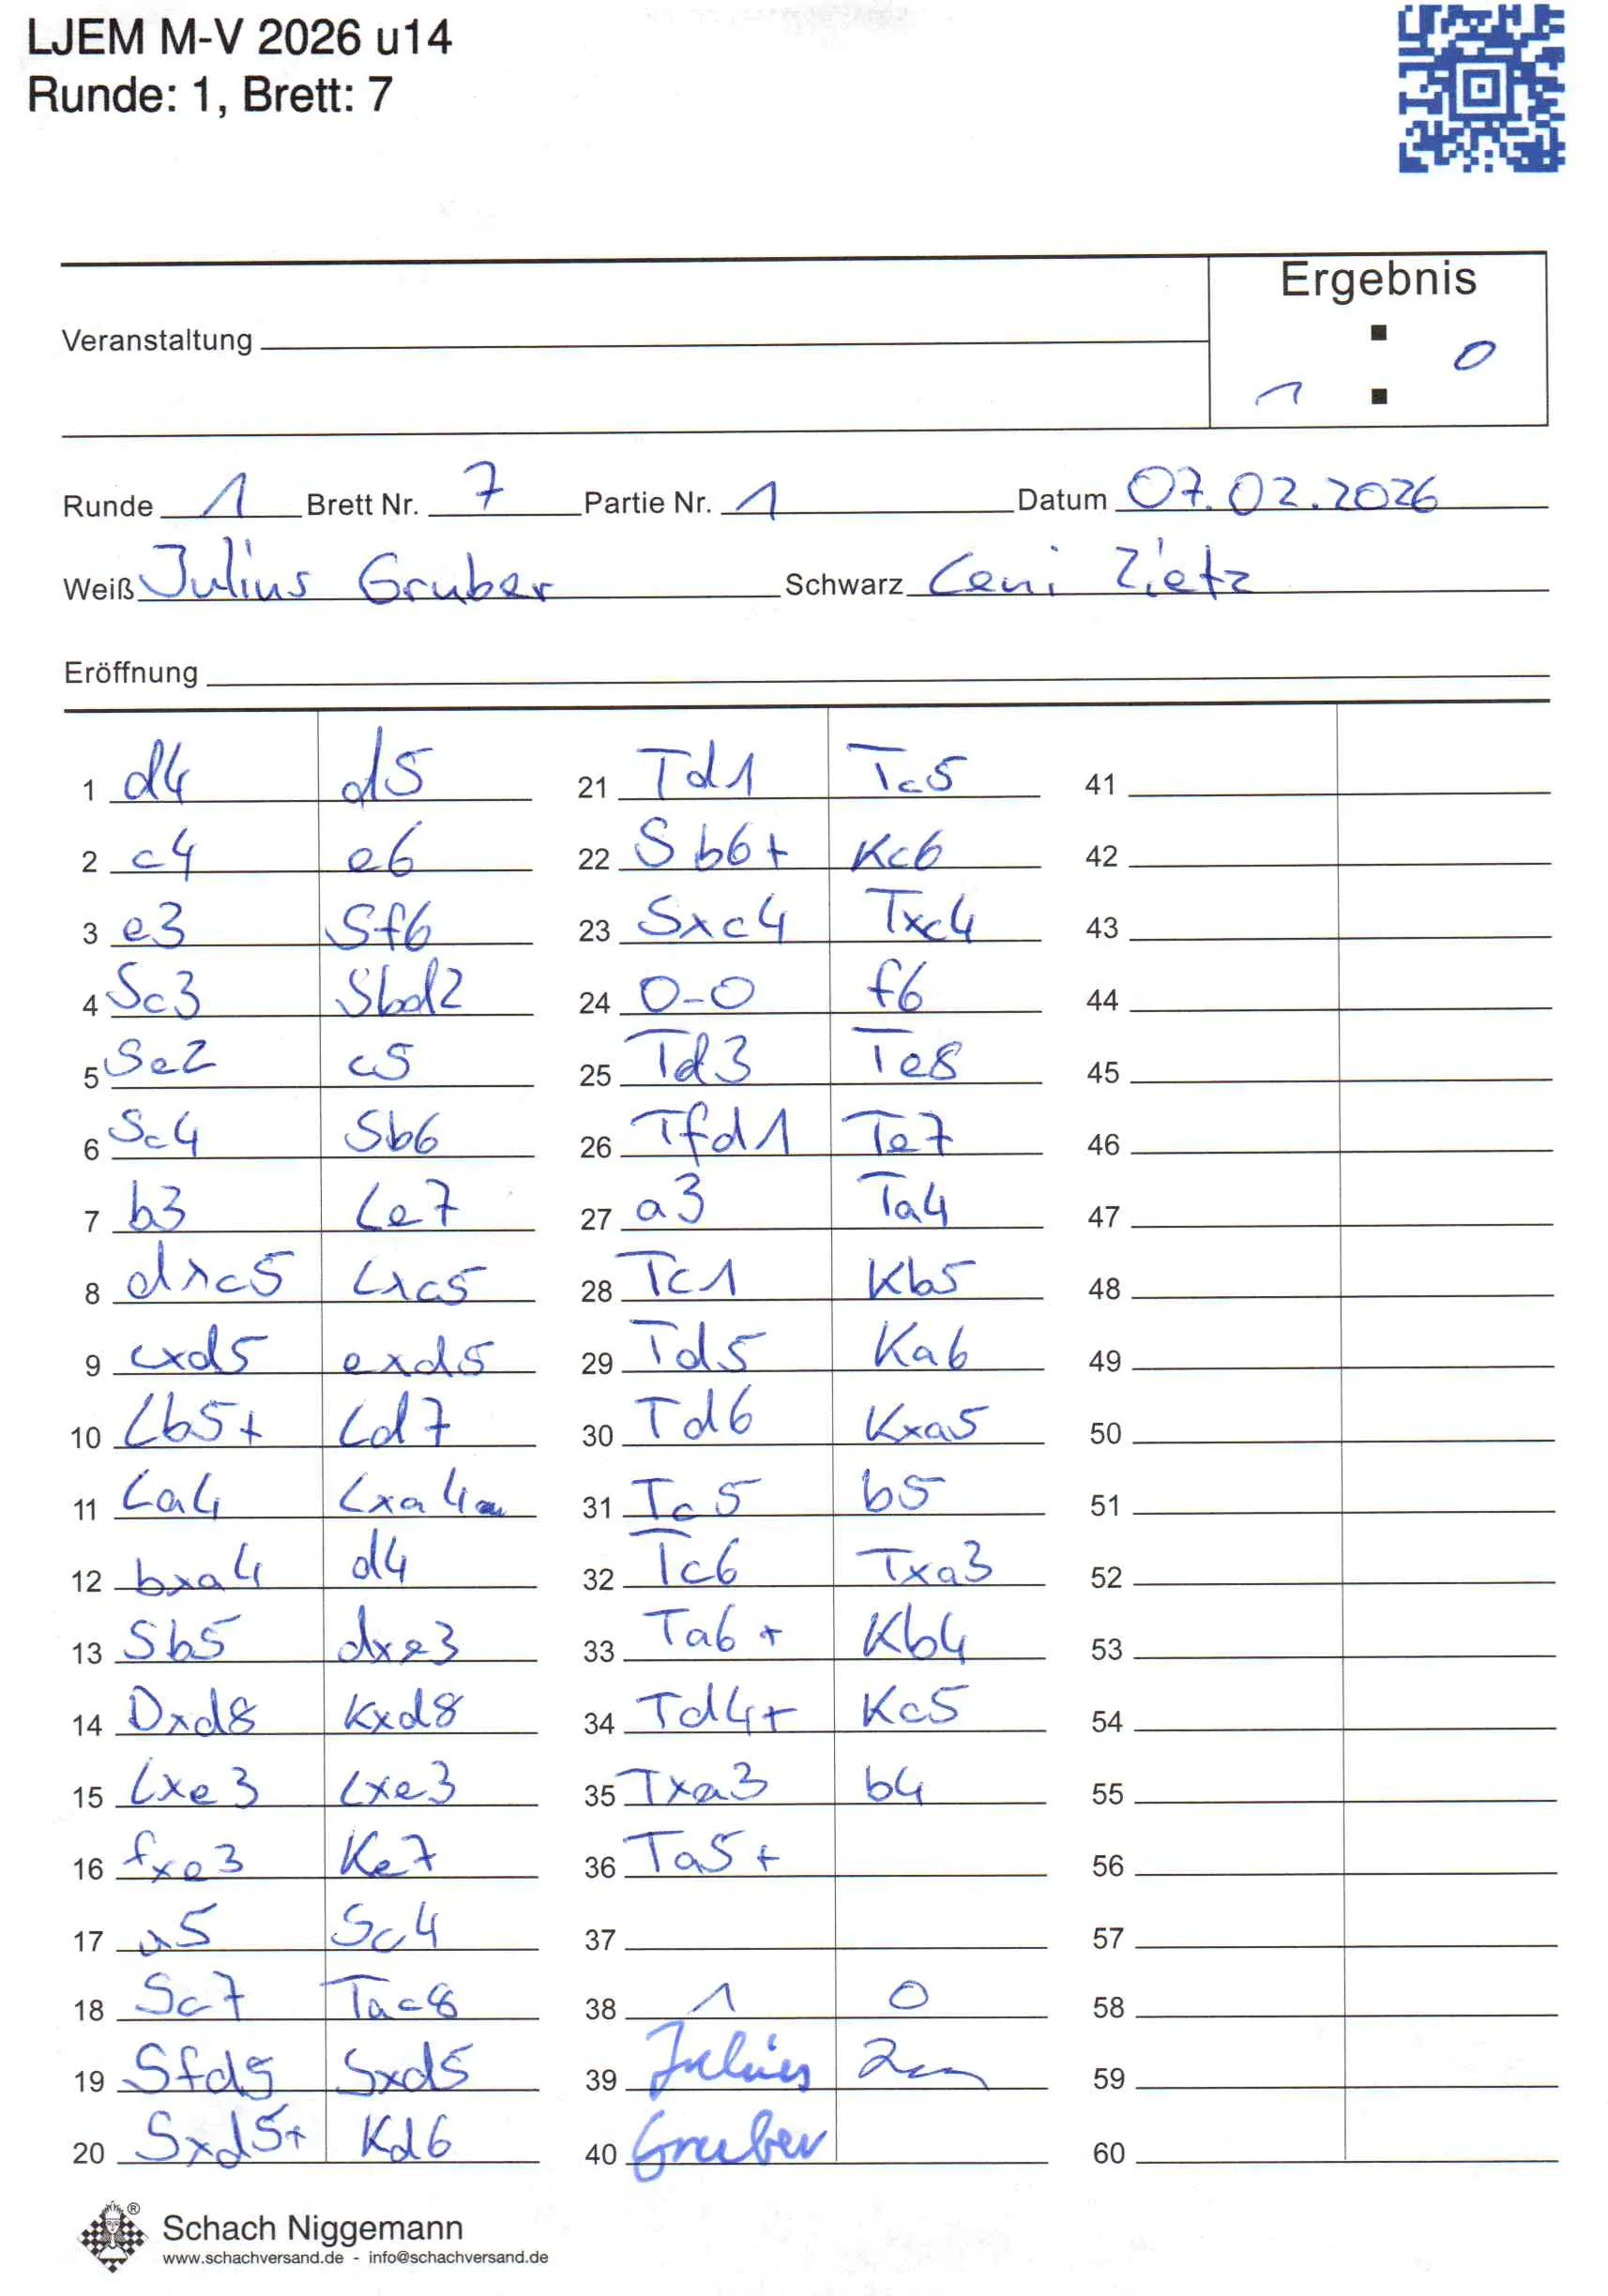 LJEM M-V 2026 u14
Runde: 1, Brett: 7
Ergebnis
Veranstaltung
1 : 0
Runde 1 Brett Nr. 7 Partie Nr. 1 Datum 07.02.2026
Weiß Julius Gruber Schwarz Leni Zietz
Eröffnung
1 d4 d5
2 c4 e6
3 e3 Sf6
4 Sc3 Sbd2
5 Se2 c5
6 Sc4 Sb6
7 b3 Le7
8 dxc5 Lxc5
9 cxd5 exd5
10 Lb5+ Ld7
11 La4 Lxa4
12 bxa4 d4
13 Sb5 dxe3
14 Dxd8 Kxd8
15 Lxe3 Lxe3
16 fxe3 Ke7
17 a5 Sc4
18 Sc7 Tac8
19 Sfd5 Sxd5
20 Sxd5+ Kd6
21 Td1 Tc5
22 Sb6+ Kc6
23 Sxc4 Txc4
24 0-0 f6
25 Td3 Te8
26 Tfd1 Te7
27 a3 Ta4
28 Tc1 Kb5
29 Td5 Ka6
30 Td6 Kxa5
31 Tc5 b5
32 Tc6 Txa3
33 Ta6+ Kb4
34 Td4+ Kc5
35 Txa3 b4
36 Ta5+
37
38 1 0
39 Julius
40 Gruber
41
42
43
44
45
46
47
48
49
50
51
52
53
54
55
56
57
58
59
60
Schach Niggemann
www.schachversand.de - info@schachversand.de